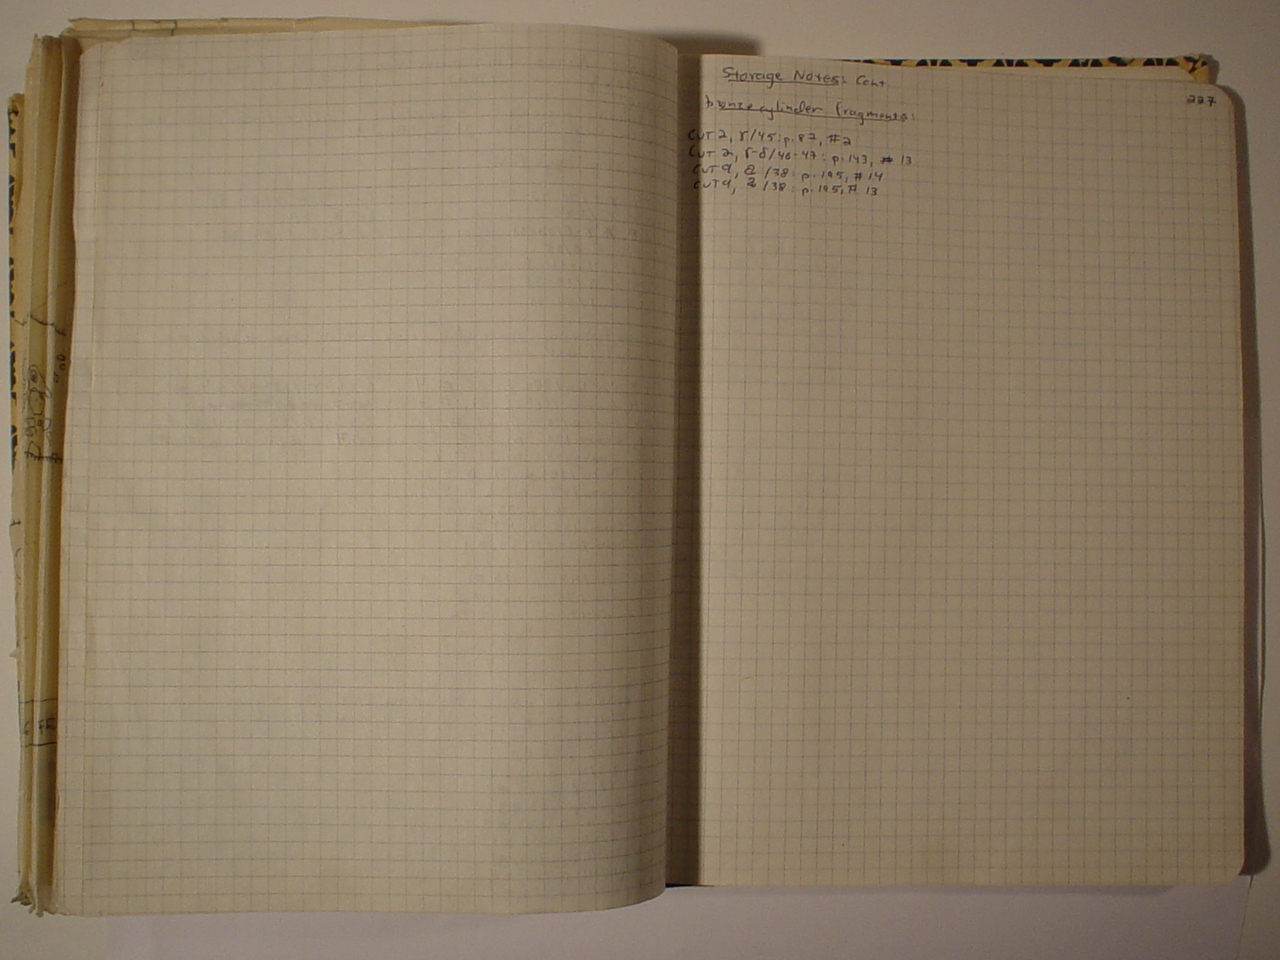 Storage Notes: Cont.
227
bronze cylinder fragments:
CUT 2, γ/45: p. 87, #2
CUT 2, γ-δ/46-47: p. 143, # 13
CUT 9, a/38: p. 195, # 14
CUT 9, a/38: p. 195, # 13